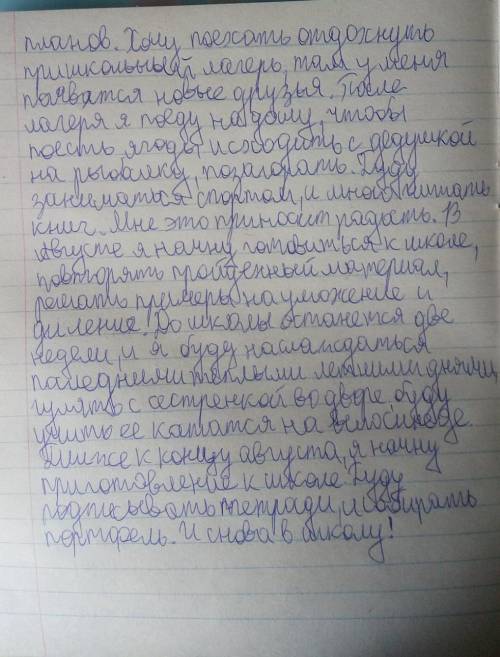 планов. Хочу поехать отдохнуть
пришкольный лагерь, там у меня
появатся новые друзья. После
лагеря я поеду на дачу, чтобы
поесть ягоды и сходить с дедушкой
на рыбалку, позагорать. Буду
заниматься спортом, и много читать
книг. Мне это приносит радость. В
августе я начну готовиться к школе,
повторять пройденный материал,
решать примеры на умножение и
диление! До школы останется две
недели, и я буду наслаждаться
последними тёплыми летними днями,
гулять с сестренкой во дворе, буду
учить её кататся на велосипеде.
Ближе к концу августа, я начну
приготовление к школе. Буду
подписывать тетради, и собирать
портфель. И снова в школу!